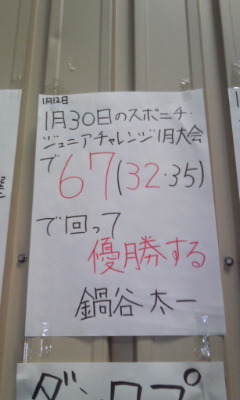 1月12日
1月30日のスポニチ・
ジュニアチャレンジ1月大会
で67(32・35)
で回って
優勝する
鍋谷太一
ダンロップ